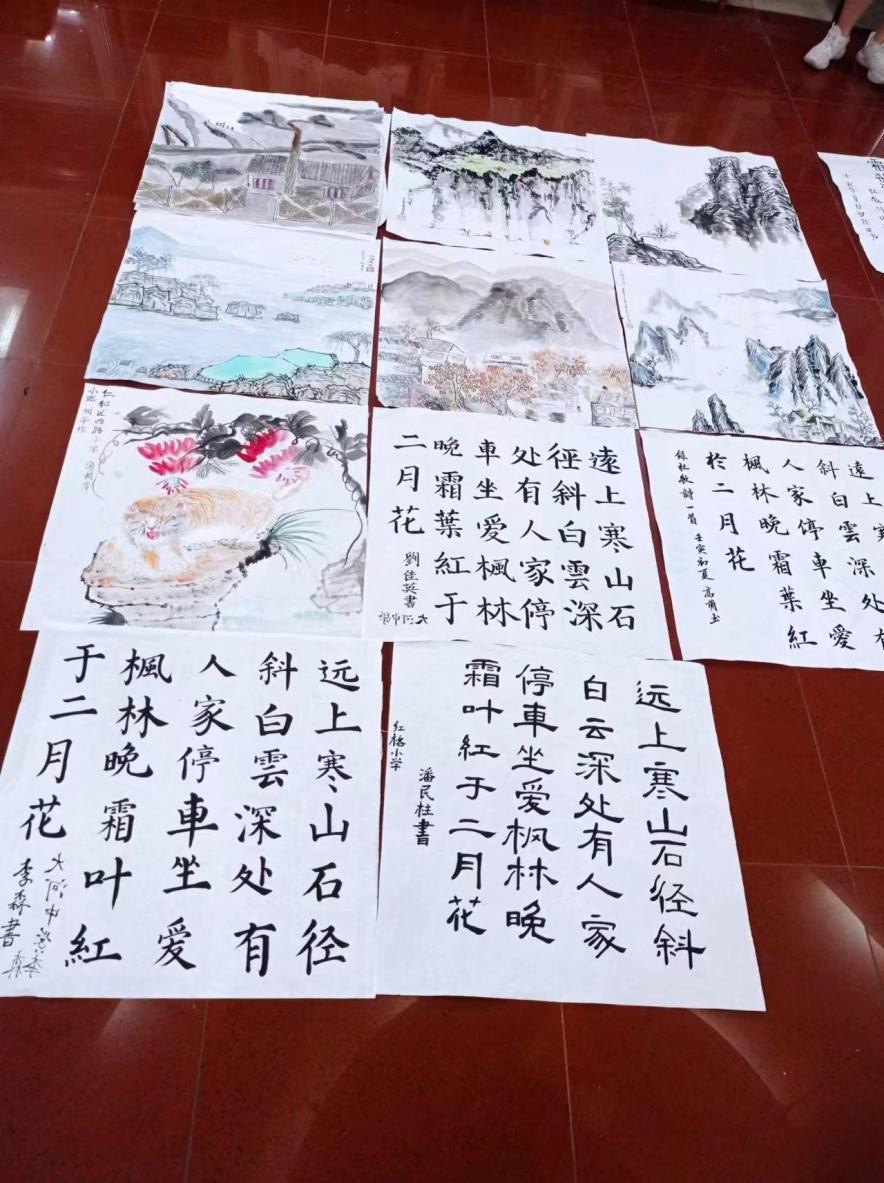 仁和区西路小学
遠上寒山石
徑斜白雲深
处有人家停
車坐愛楓林
晚霜葉紅于
二月花
劉佳英書
遠上
斜白雲深处
人家停車坐愛
楓林晚霜葉紅
於二月花
錄杜牧詩一首 壬寅初夏
远上寒山石径
斜白雲深处有
人家停車坐爱
楓林晚霜叶紅
于二月花
大河中学
李森書
远上寒山石径斜
白云深处有人家
停車坐爱枫林晚
霜叶紅于二月花
潘民柱書
红格小学